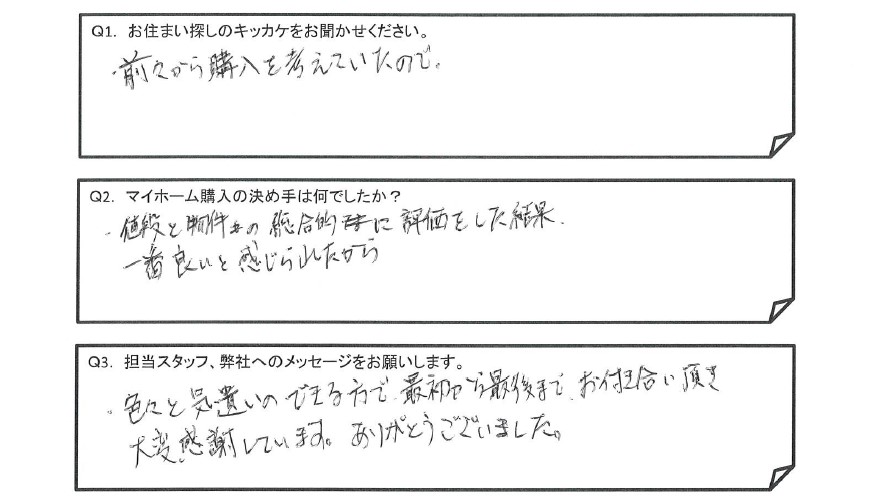 Q1. お住まい探しのキッカケをお聞かせください。
・前々から購入を考えていたので。
Q2. マイホーム購入の決め手は何でしたか？
・値段と物件の総合的に評価をした結果、
一番良いと感じられたから
Q3. 担当スタッフ、弊社へのメッセージをお願いします。
・色々と気遣いのできる方で、最初から最後まで、お付き合い頂き
大変感謝しています。ありがとうございました。